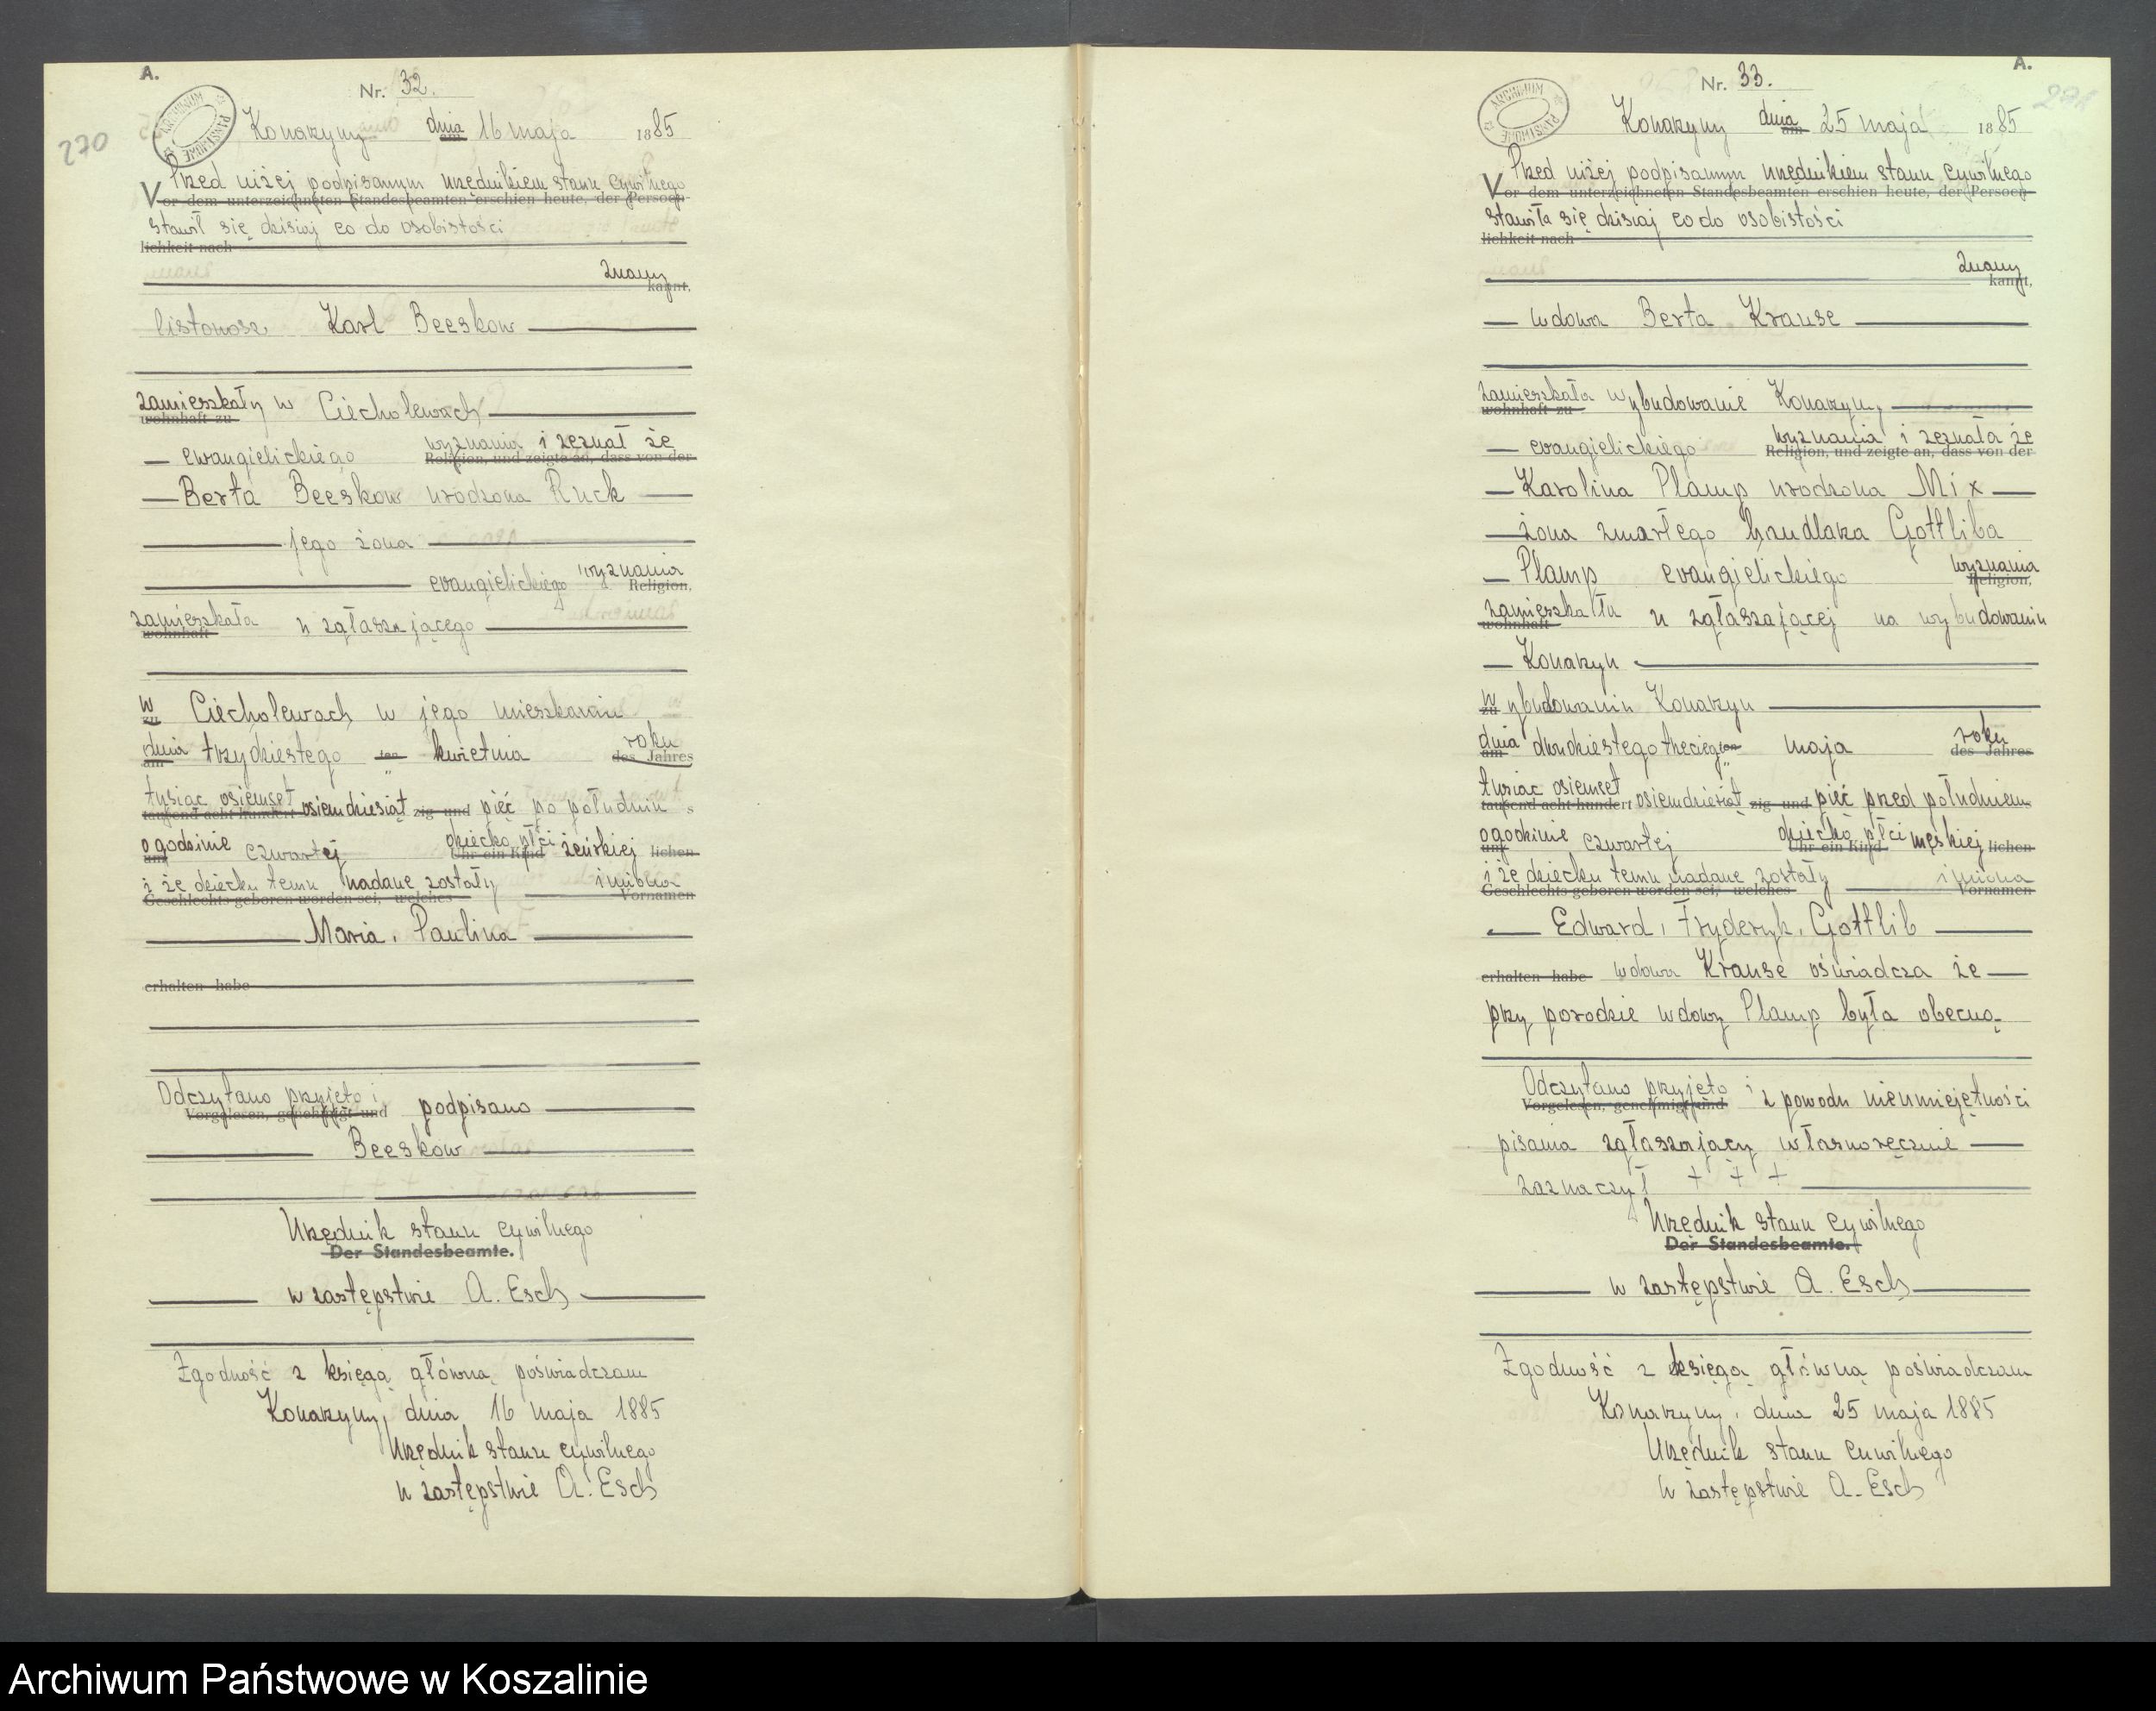 A.
Nr. 32.
270
ARCHIWUM PAŃSTWOWE
Konarzyny dnia am 16 maja 1885
Przed niżej podpisanym urzędnikiem stanu cywilnego
Vor dem unterzeichneten Standesbeamten erschien heute, der Persoen-
stawił się dzisiaj co do osobistości
lichkeit nach
znany
kannt,
listonosz Karl Beeskow
zamieszkały w Ciecholewach
wohnhaft zu
wyznania i zeznał że
ewangielickiego Religion, und zeigte an, dass von der
Berta Beeskow urodzona Ruck
jego żona
ewangielickiego wyznania
Religion,
zamieszkała u zgłaszającego
wohnhaft
w
zu Ciecholewach w jego mieszkaniu
dnia trzydziestego ten kwietnia roku
am des Jahres
tysiąc osiemset osiemdziesiąt zig und pięć po południu
tausend acht hundert
o godzinie czwartej dziecko płci żeńskiej lichen
um Uhr ein Kind
i że dziecku temu nadane zostały imiona
Geschlechts geboren worden sei, welches Vornamen
Maria, Paulina
erhalten habe
Odczytano przyjęto i
Vorgelesen, genehmigt und podpisano
Beeskow
Urzędnik stanu cywilnego
Der Standesbeamte.
w zastępstwie A. Esch
Zgodność z księgą główną poświadczam
Konarzyny, dnia 16 maja 1885
Urzędnik stanu cywilnego
w zastępstwie A. Esch
A.
Nr. 33.
ARCHIWUM PAŃSTWOWE
Konarzyny dnia am 25 maja 1885
Przed niżej podpisanym urzędnikiem stanu cywilnego
Vor dem unterzeichneten Standesbeamten erschien heute, der Persoen-
stawiła się dzisiaj co do osobistości
lichkeit nach
znany
kannt,
wdowa Berta Krause
zamieszkała wybudowanie Konarzyn,
wohnhaft zu
wyznania i zeznała że
ewangielickiego Religion, und zeigte an, dass von der
Karolina Plamp urodzona Mix
żona zmarłego handlarza Gottliba
Plamp ewangielickiego wyznania
Religion,
zamieszkała u zgłaszającej na wybudowaniu
wohnhaft
Konarzyn
wybudowaniu Konarzyn
zu
dnia dwudziestego trzeciego ten maja roku
am des Jahres
tysiąc osiemset osiemdziesiąt zig und pięć przed południem
tausend acht hundert
o godzinie czwartej dziecko płci męskiej lichen
um Uhr ein Kind
i że dziecku temu nadane zostały imiona
Geschlechts geboren worden sei, welches Vornamen
Edward, Fryderyk, Gottlib
erhalten habe wdowa Krause oświadcza że
przy porodzie wdowy Plamp była obecną
Odczytano przyjęto i z powodu nieumiejętności
Vorgelesen, genehmigt und
pisania zgłaszający własnoręcznie
zaznaczył + + +
Urzędnik stanu cywilnego
Der Standesbeamte.
w zastępstwie A. Esch
Zgodność z księgą główną poświadczam
Konarzyny, dnia 25 maja 1885
Urzędnik stanu cywilnego
w zastępstwie A. Esch
Archiwum Państwowe w Koszalinie